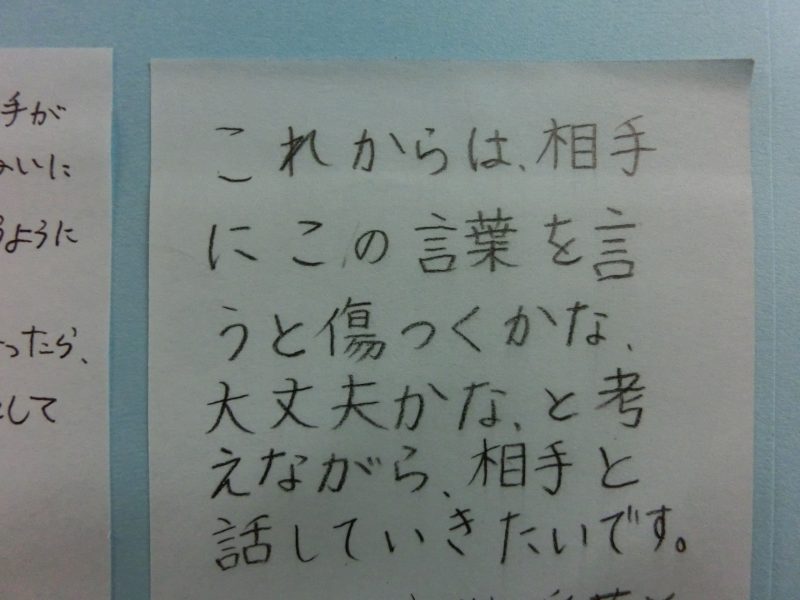 これからは、相手
にこの言葉を言
うと傷つくかな、
大丈夫かな、と考
えながら、相手と
話していきたいです。
手が
いに
ように
ったら、
して